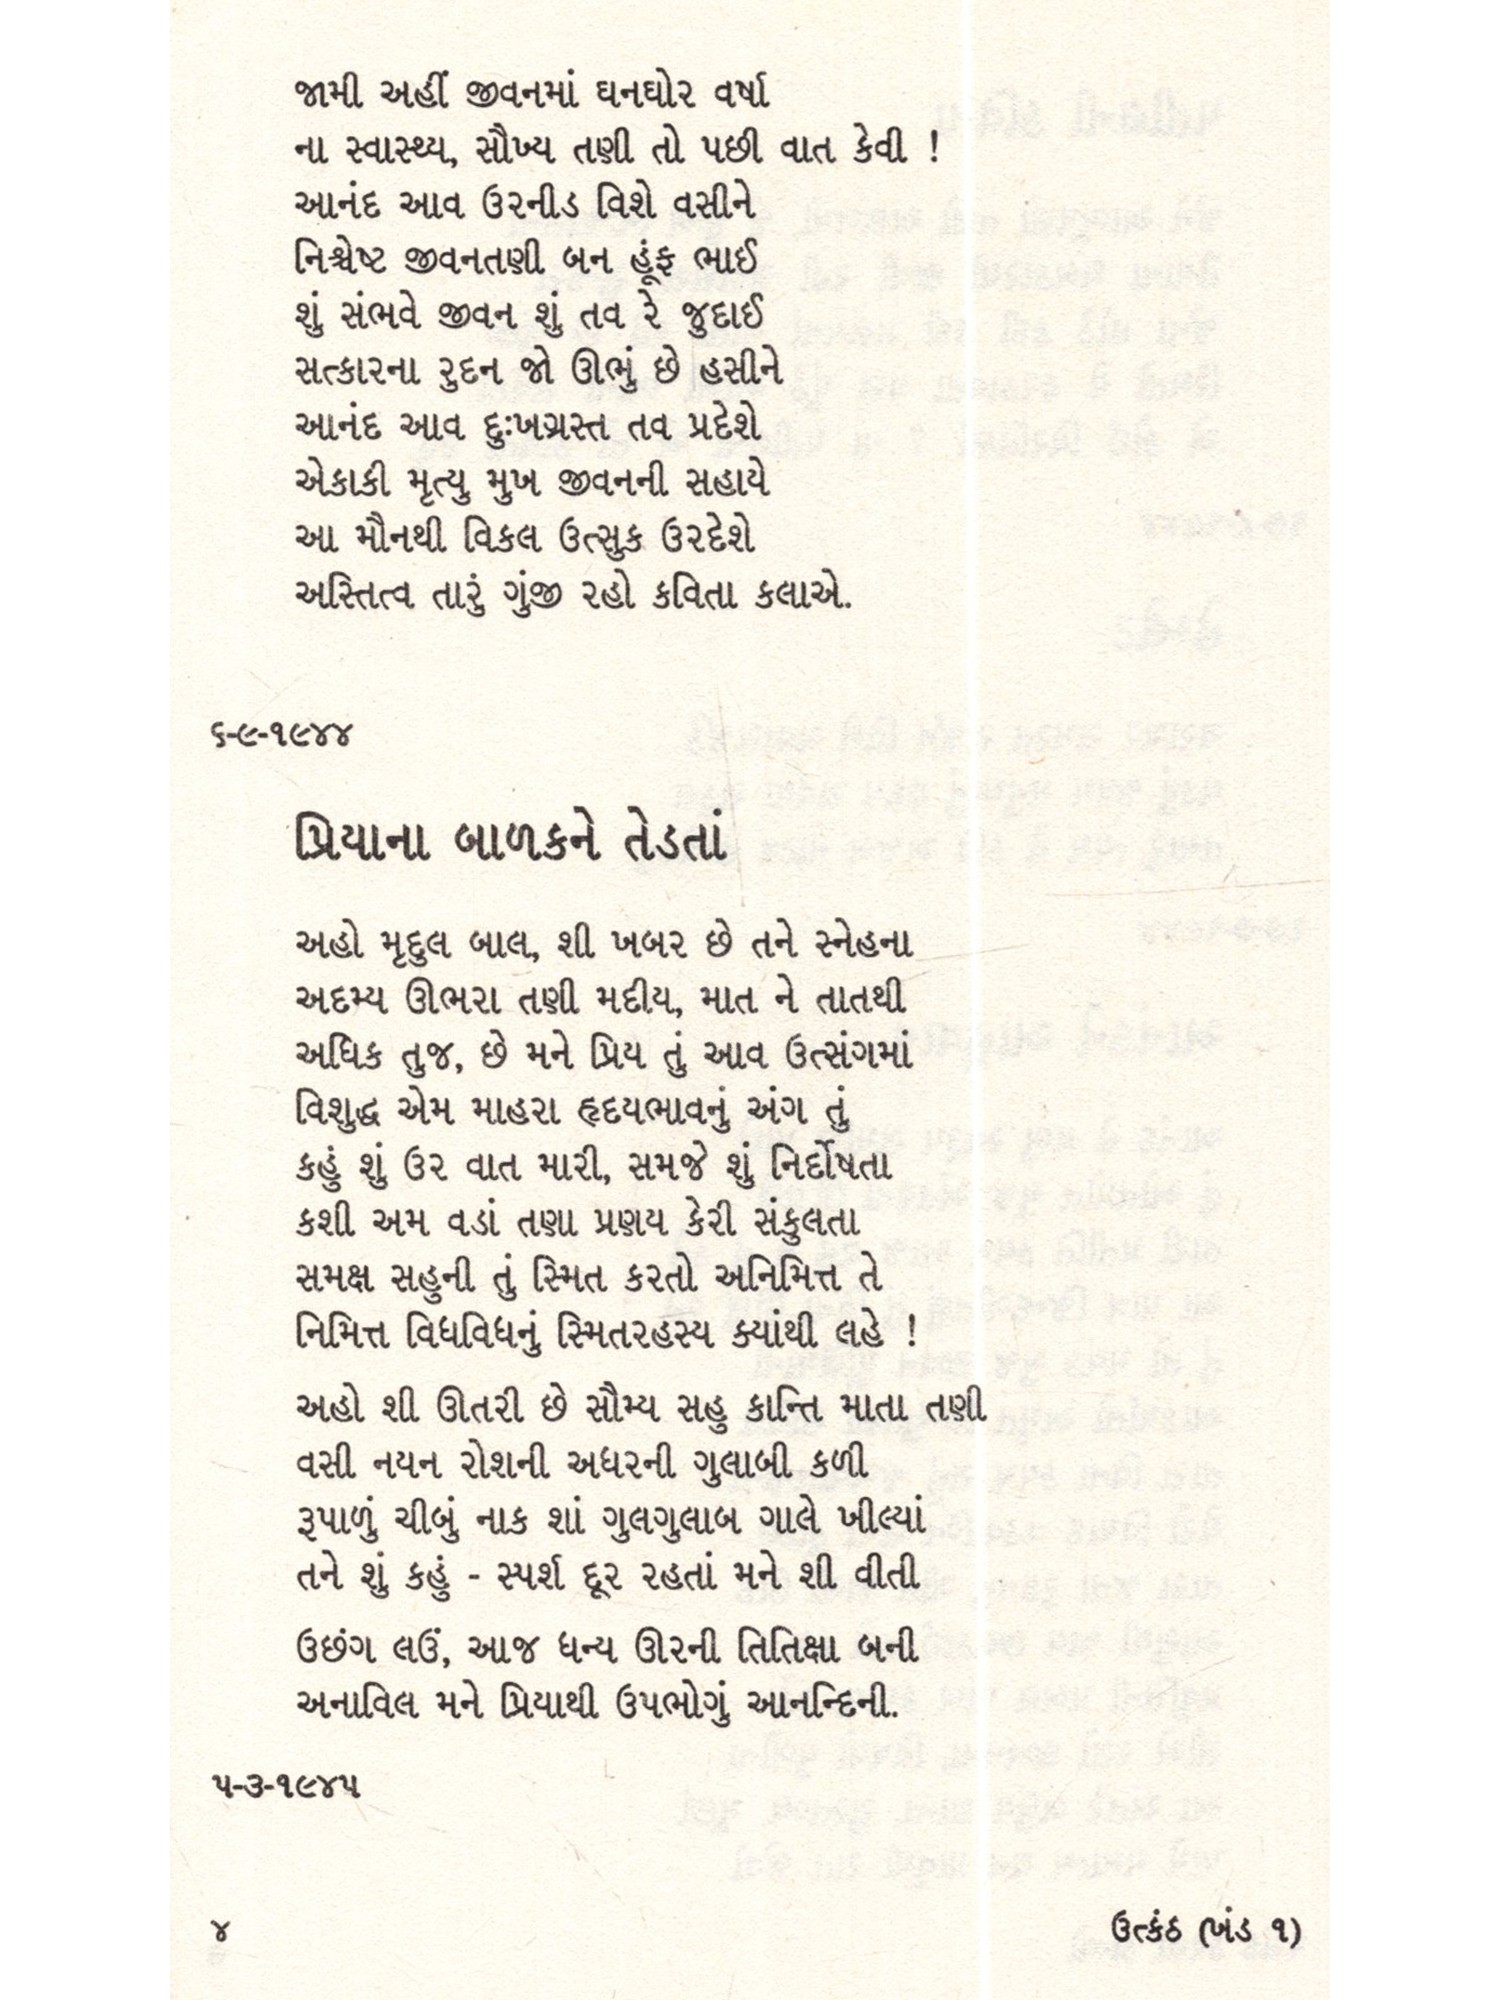 જામી અહીં જીવનમાં ઘનઘોર વર્ષા
ના સ્વાસ્થ્ય, સૌખ્ય તણી તો પછી વાત કેવી !
આનંદ આવ ઉરનીડ વિશે વસીને
નિશ્ચેષ્ટ જીવનતણી બન હૂંફ ભાઈ
શું સંભવે જીવન શું તવ રે જુદાઈ
સત્કારના રુદન જો ઊભું છે હસીને
આનંદ આવ દુઃખગ્રસ્ત તવ પ્રદેશે
એકાકી મૃત્યુ મુખ જીવનની સહાયે
આ મૌનથી વિકલ ઉત્સુક ઉરદેશે
અસ્તિત્વ તારું ગુંજી રહો કવિતા કલાએ.
૬-૯-૧૯૪૪
પ્રિયાના બાળકને તેડતાં
અહો મૃદુલ બાલ, શી ખબર છે તને સ્નેહના
અદમ્ય ઊભરા તણી મદીય, માત ને તાતથી
અધિક તુજ, છે મને પ્રિય તું આવ ઉત્સંગમાં
વિશુદ્ધ એમ માહરા હૃદયભાવનું અંગ તું
કહું શું ઉર વાત મારી, સમજે શું નિર્દોષતા
કશી અમ વડાં તણા પ્રણય કેરી સંકુલતા
સમક્ષ સહુની તું સ્મિત કરતો અનિમિત્ત તે
નિમિત્ત વિધવિધનું સ્મિતરહસ્ય ક્યાંથી લહે !
અહો શી ઊતરી છે સૌમ્ય સહુ કાન્તિ માતા તણી
વસી નયન રોશની અધરની ગુલાબી કળી
રૂપાળું ચીબું નાક શાં ગુલગુલાબ ગાલે ખીલ્યાં
તને શું કહું - સ્પર્શ દૂર રહતાં મને શી વીતી
ઉછંગ લઉં, આજ ધન્ય ઊરની તિતિક્ષા બની
અનાવિલ મને પ્રિયાથી ઉપભોગું આનન્દિની.
૫-૩-૧૯૪૫
૪
ઉત્કંઠ (ખંડ ૧)